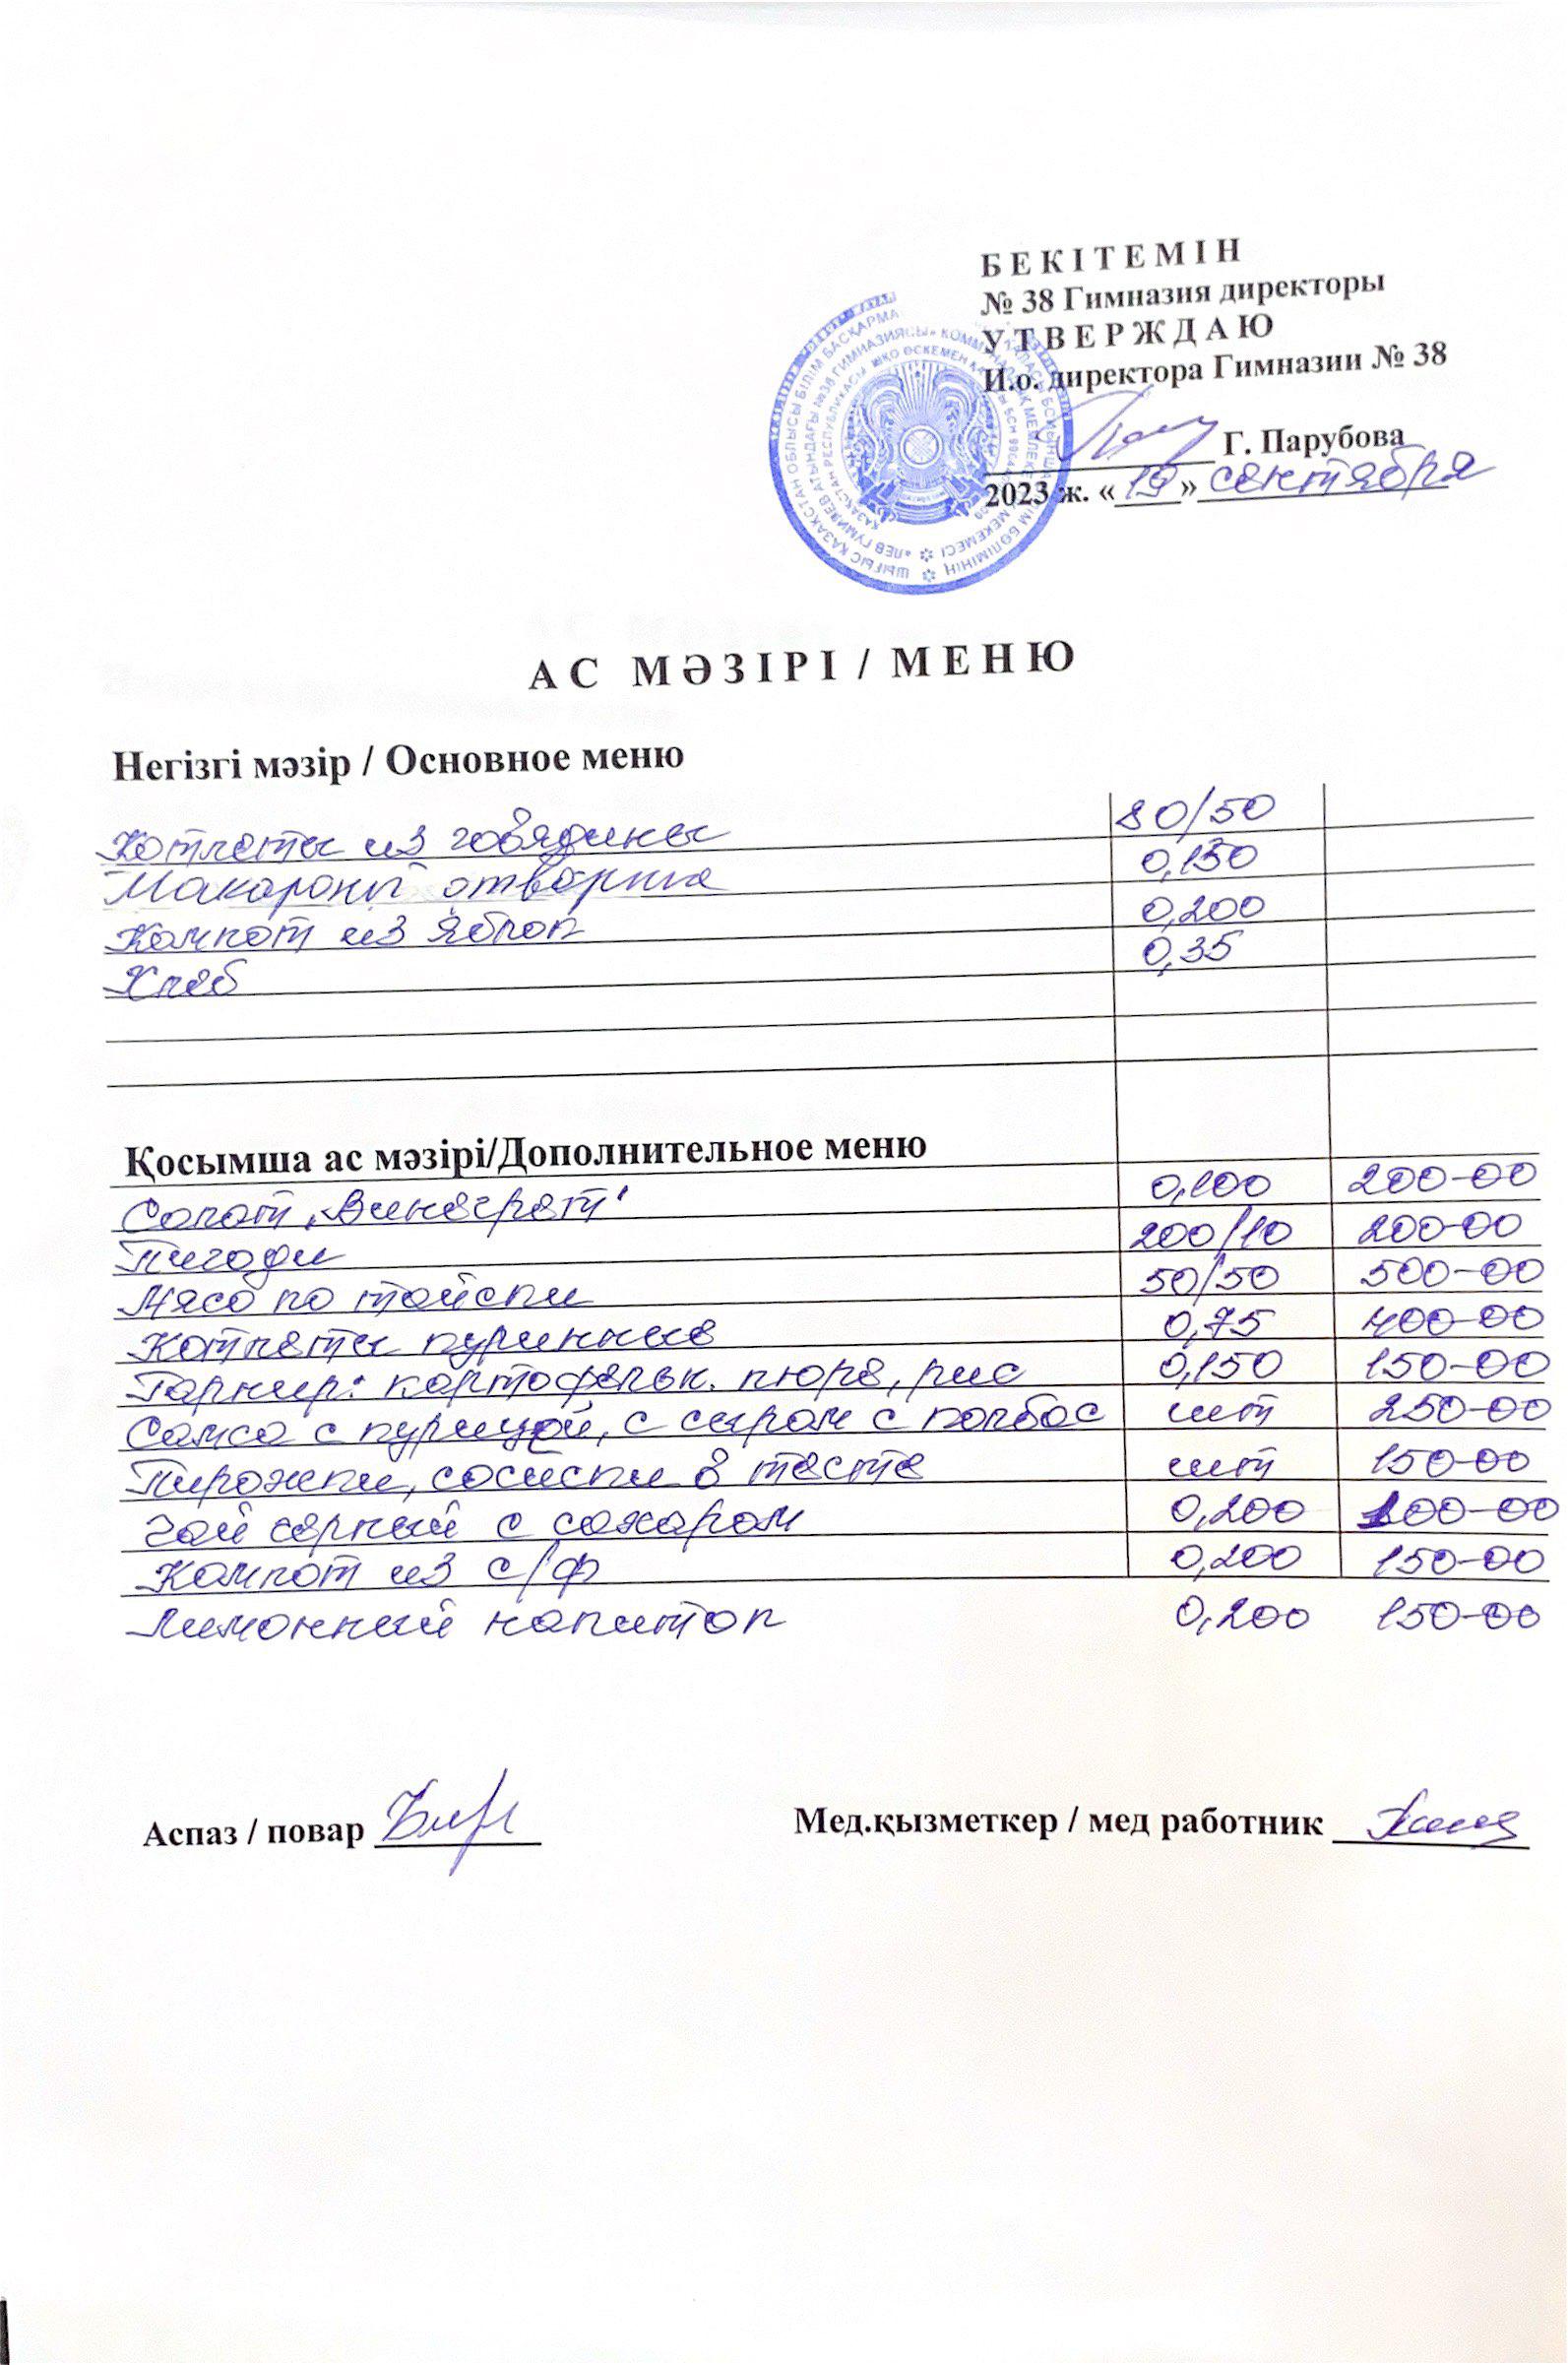 БЕКІТЕМІН
№ 38 Гимназия директоры
УТВЕРЖДАЮ
И.о. директора Гимназии № 38
Г. Парубова
2023 ж. «19» сентября
АС МӘЗІРІ / МЕНЮ
Негізгі мәзір / Основное меню
Котлеты из говядины 80/50
Макароны отварные 0,150
Компот из яблок 0,200
Хлеб 0,35
Қосымша ас мәзірі/Дополнительное меню
Салат "Винегрет" 0,100 200-00
Пигоди 200/10 200-00
Мясо по тайски 50/50 500-00
Котлеты куриные 0,75 400-00
Гарнир: картофельн. пюре, рис 0,150 150-00
Самса с курицей, с сыром с колбас шт 250-00
Пирожки, сосиски в тесте шт 150-00
Чай черный с сахаром 0,200 100-00
Компот из с/ф 0,200 150-00
Лимонный напиток 0,200 150-00
Аспаз / повар
Мед.қызметкер / мед работник